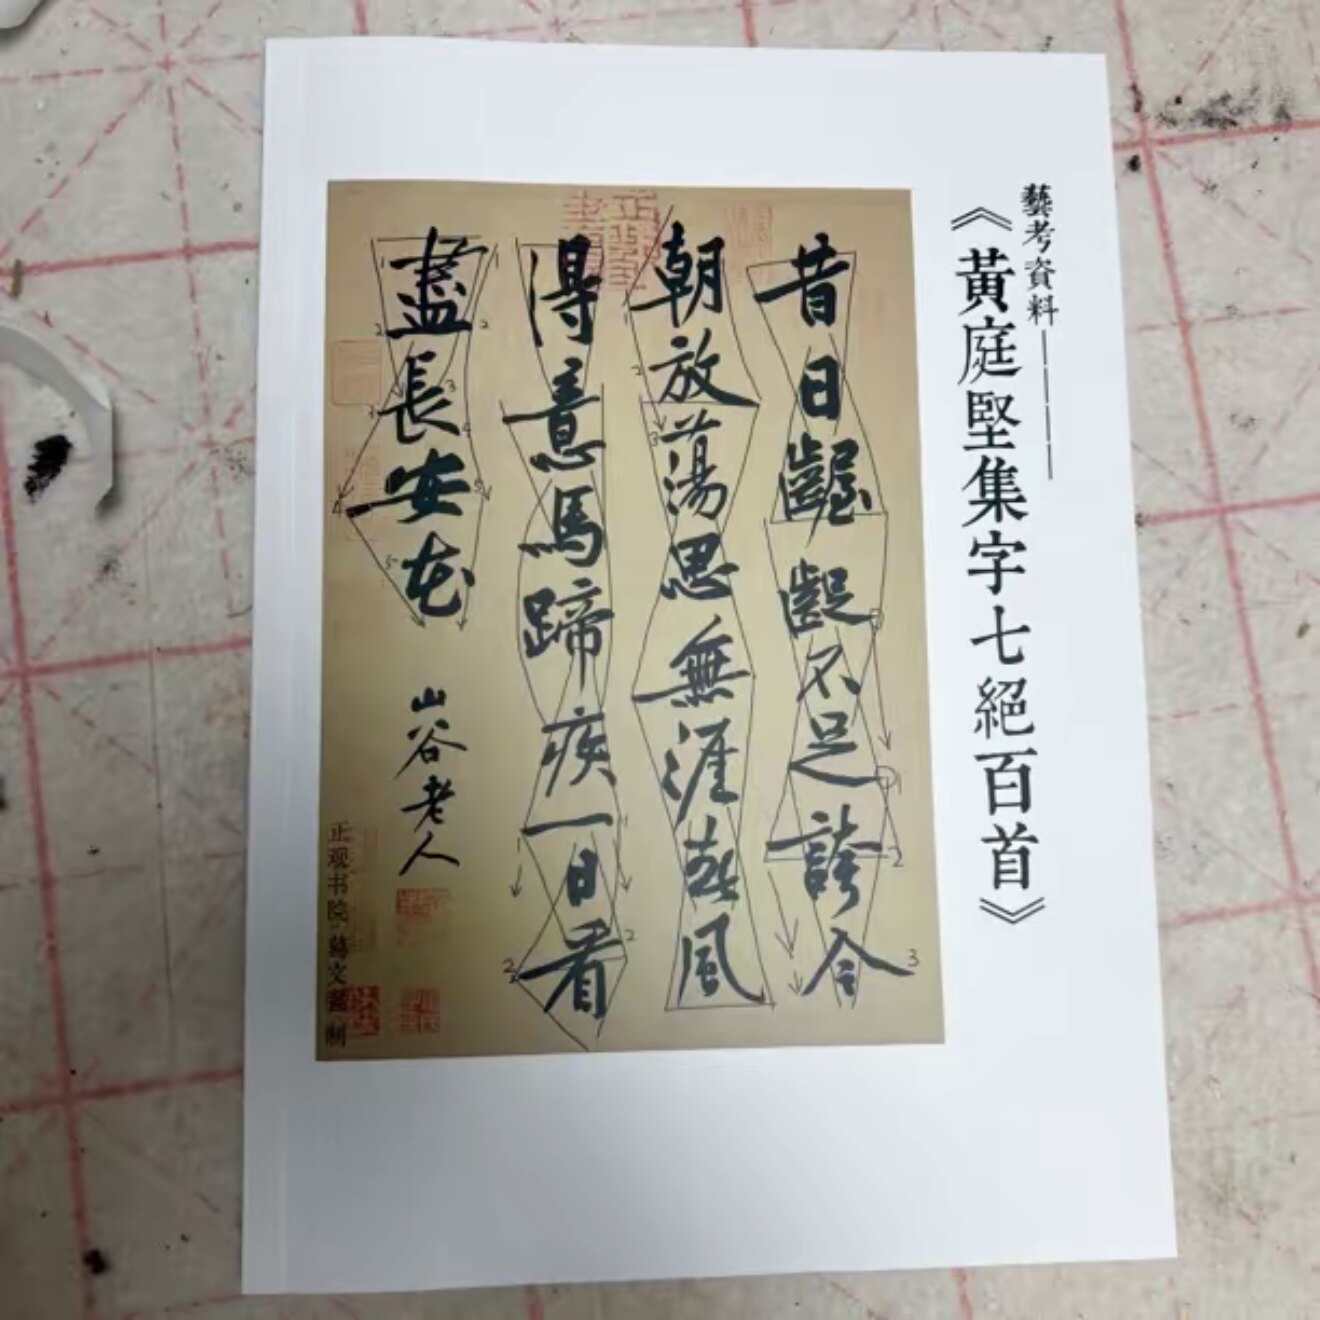 藝考資料————
《黃庭堅集字七絕百首》
昔日齷齪不足誇今
朝放蕩思無涯春風
得意馬蹄疾一日看
盡長安花
山谷老人
正观书院·葛文
制